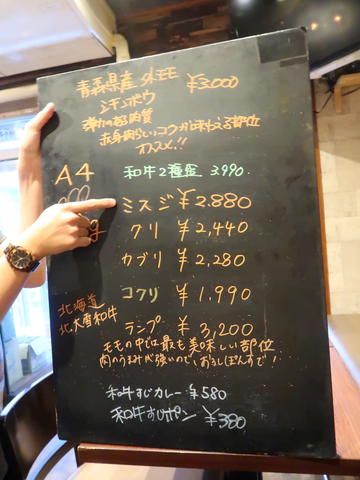 青森県産 外モモ ¥3,000
シキンボウ
弾力の超肉質
赤身肉らしいコクが味わえる部位
オススメ!!
A4
和牛2種盛 3,990
ミスジ ¥2,880
クリ ¥2,440
カブリ ¥2,280
コクリ ¥1,990
北海道
北大雪和牛
ランプ ¥3,200
モモの中では最も美味しい部位
肉のうまみが強いので、おろしぽんずで!
和牛すじカレー ¥580
和牛すじポン ¥380